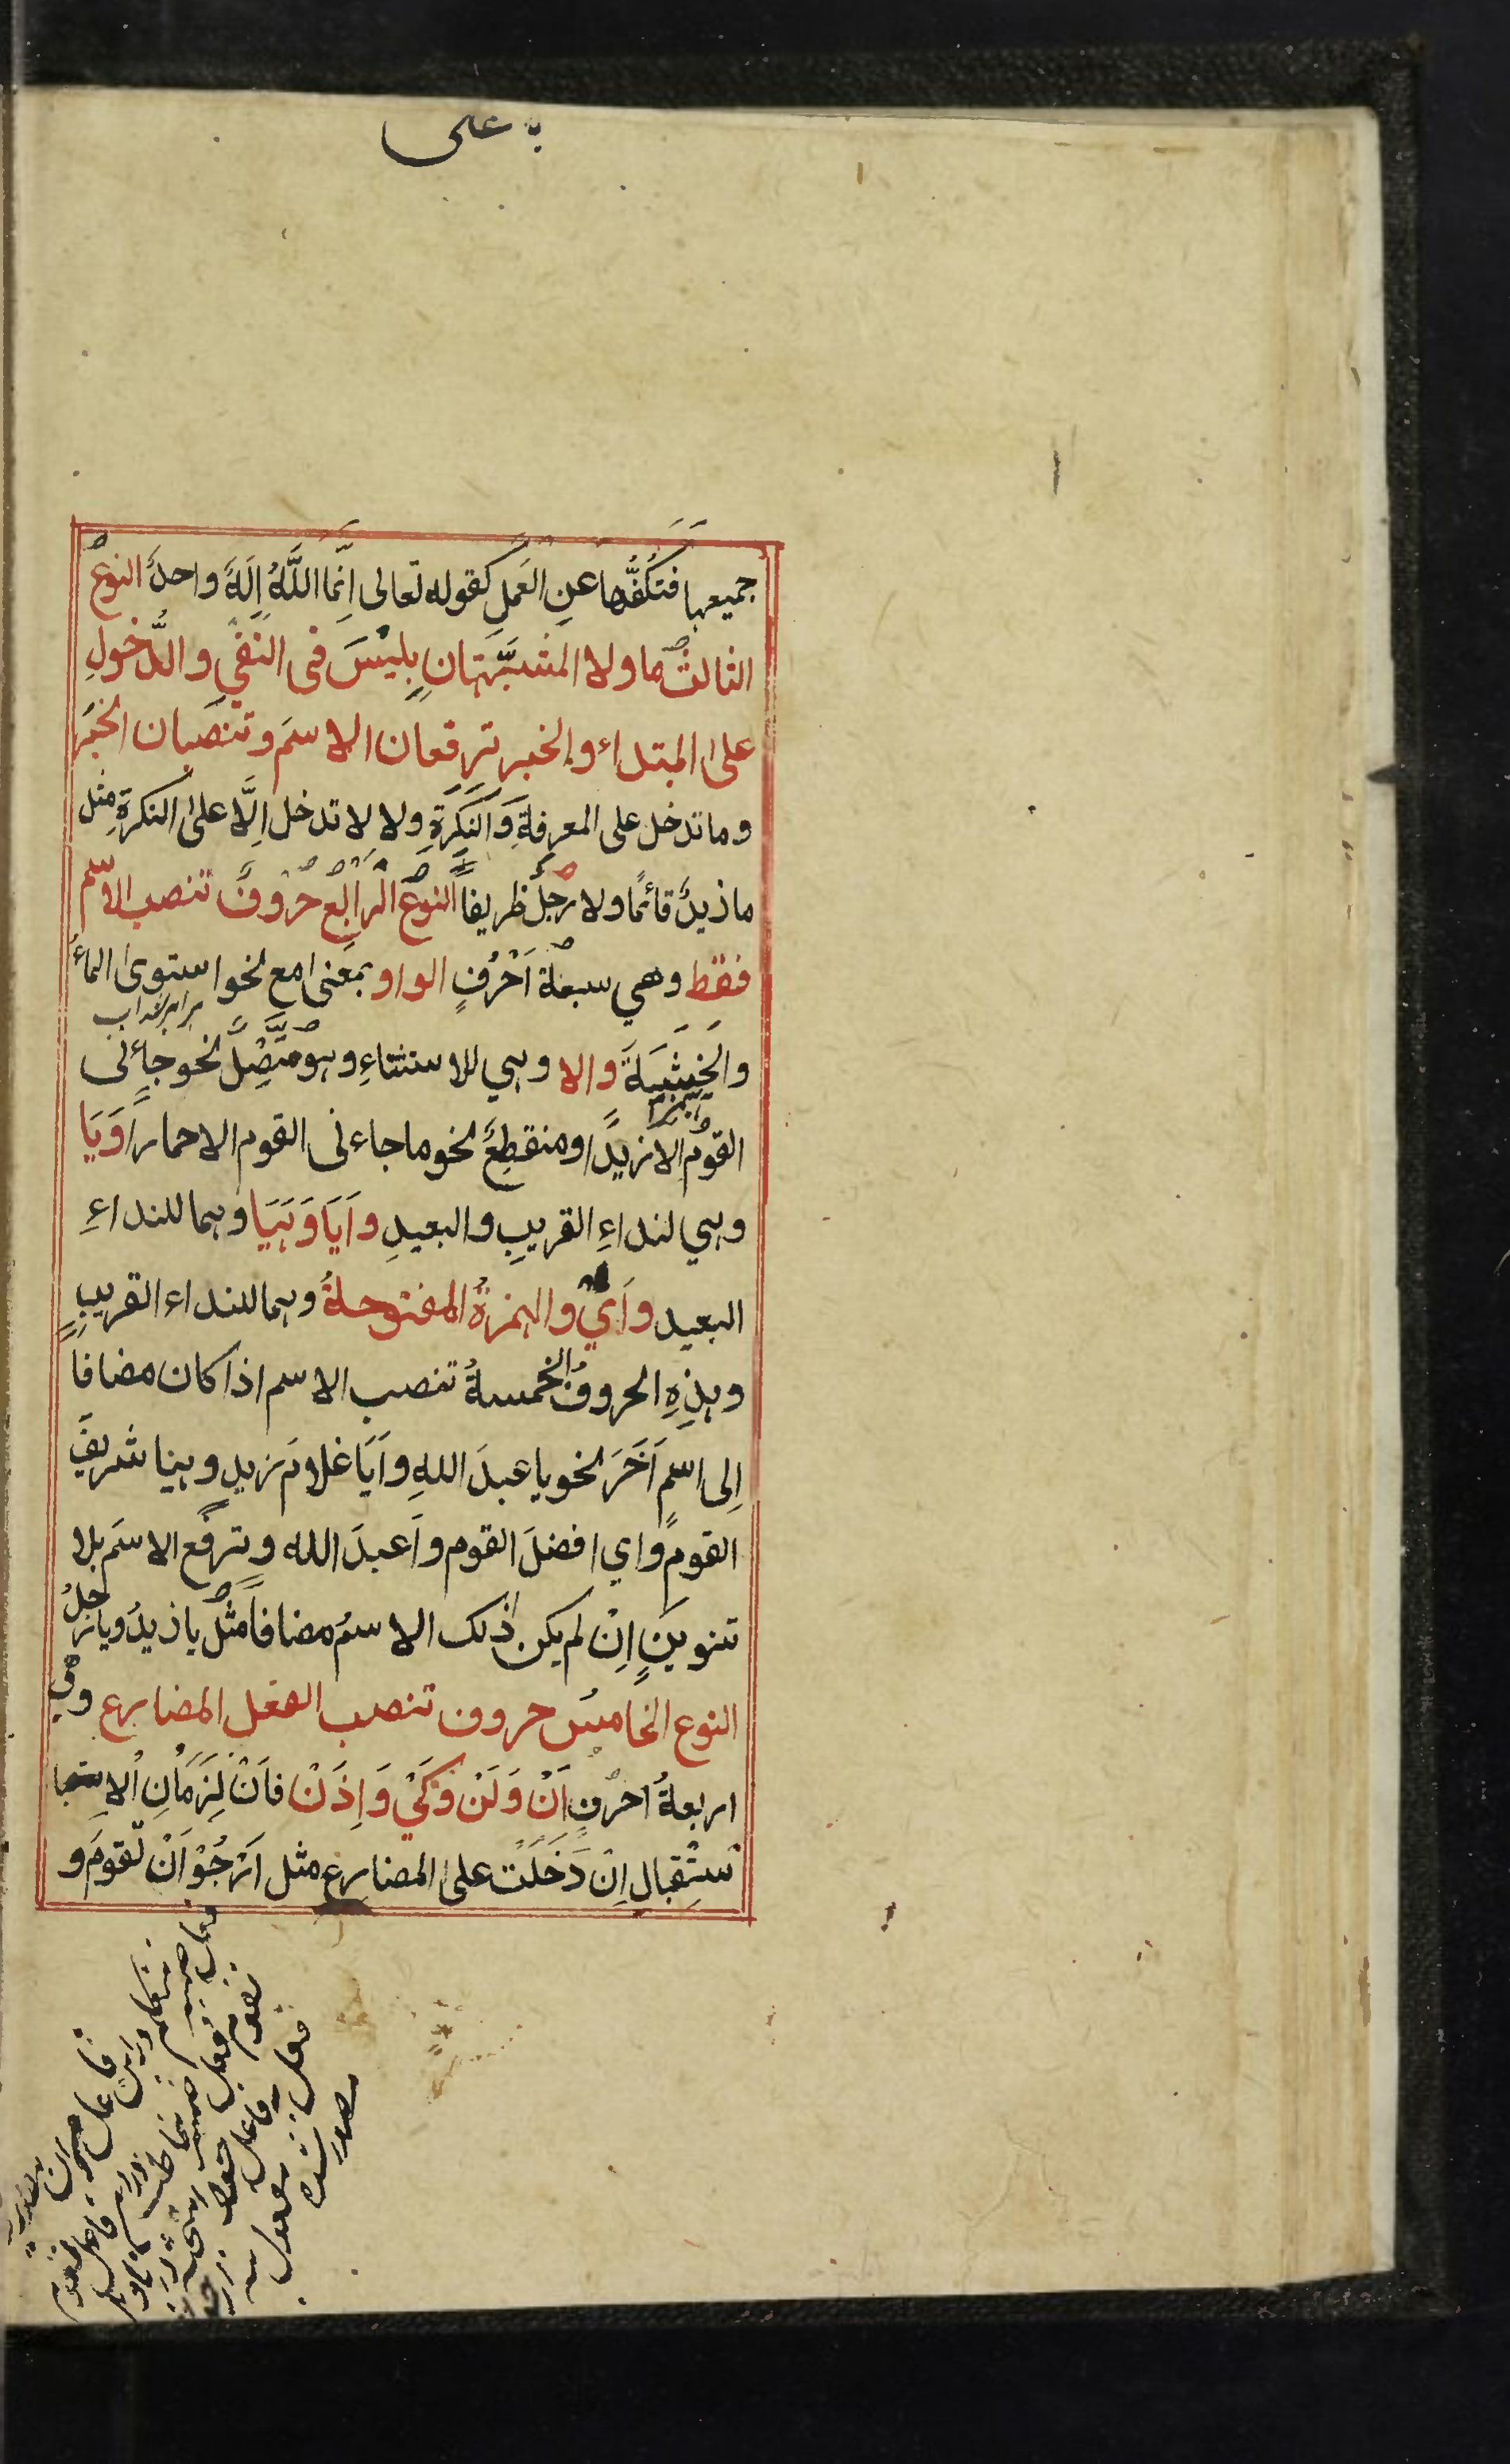 على
جميعها فتَكُفُّها عنِ العَمَلِ كقوله تعالى اِنَّمَا اللَّهُ اِلَهٌ واحدٌ النوعُ
الثالثُ ما ولا المشبَّهتانِ بِلَيْسَ فى النفىِ والدُّخولِ
على المبتداء والخبر ترفعان الاسمَ وتنصبان الخبَرَ
وما تدخل على المعرفةِ وَالنَكِرَةِ ولا لا تدخل اِلَّا على النكرةِ مثل
ما ذيدٌ قائمًا ولا رجلٌ ظريفاً النوعُ الرابعُ حُرُوفٌ تنصب الاسم
فقط وهي سبعةُ اَحْرُفٍ الواو بمعنى مع نحو استوى الماءُ
برابر شد اب
والخَشَبَةَ والا وهي للاستثناءِ وهو متَّصِلٌ نحو جاءنى
القومُ الا زيدًا ومنقطِعٌ نحو ما جاءنى القوم الا حمارًا وَيَا
وهي لنداءِ القريبِ والبعيدِ وَاَيَا وَهَيَا وهما للنداءِ
البعيد واَيْ والهمزةُ المفتوحةُ وهما للنداء القريبِ
وهذِهِ الحروفُ الخمسةُ تنصب الاسم اذا كان مضافا
اِلى اسمٍ آخَرَ نحو يا عبدَ اللهِ واَيَا غلامَ زيدٍ وهيا شريفَ
القومِ واي افضلَ القوم واَعبدَ الله وترفع الاسمَ بلا
تنوينٍ اِنْ لم يكن ذلك الاسمُ مضافاً مثل يا ذيدُ ويا رجلُ
النوع الخامسُ حروف تنصب الفعل المضارع وهي
اربعةُ احرُفٍ اَنْ وَلَنْ وَكَيْ وَاِذَنْ فاَنْ لِزَمَانِ الاِستبا
سْتِقبالِ اِنْ دَخَلَت على المضارع مثل اَرْجُوْ اَنْ تقومَ و